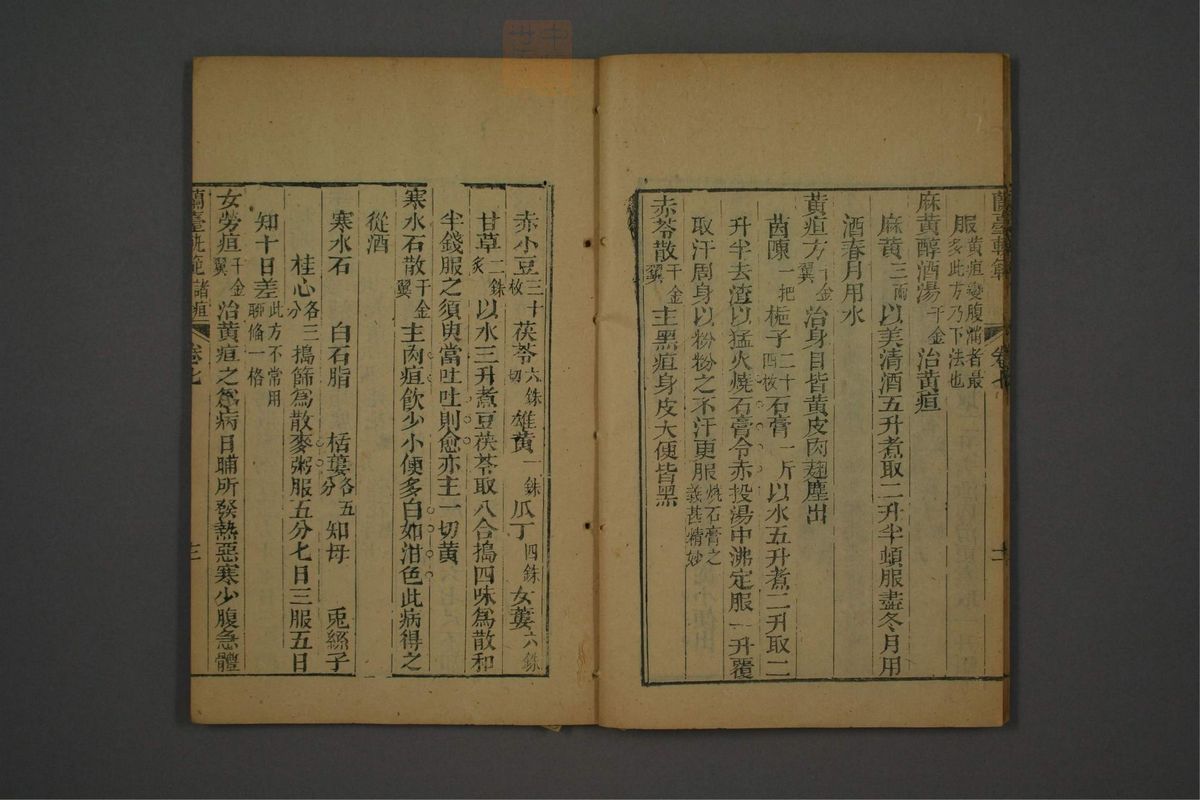 蘭臺軌範 卷七 二
服黃疸變腹滿者最多此方乃下法也
麻黃醇酒湯千金治黃疸
麻黃三兩以美清酒五升煮取二升半頓服盡冬月用
酒春月用水
黃疸方千金翼治身目皆黃皮肉麴塵出
茵蔯一把梔子二十四枚石膏一斤以水五升煮二升取二
升半去渣以猛火燒石膏令赤投湯中沸定服一升覆
取汗周身以粉粉之不汗更服燒石膏之義甚精妙
赤苓散千金翼主黑疸身皮大便皆黑
赤小豆三十枚茯苓六銖切雄黃一銖瓜丁四銖女萎六銖
甘草二銖炙以水三升煮豆茯苓取八合搗四味爲散和
半錢服之須臾當吐吐則愈亦主一切黃
寒水石散千金翼主肉疸飮少小便多白如泔色此病得之
從酒
寒水石 白石脂 栝蔞各五分知母 兎絲子
桂心各三分搗篩爲散麥粥服五分七日三服五日
知十日差此方不常用聊備一格
女勞疸千金翼治黃疸之爲病日晡所發熱惡寒少腹急體
蘭臺軌範 諸疸 卷七 三